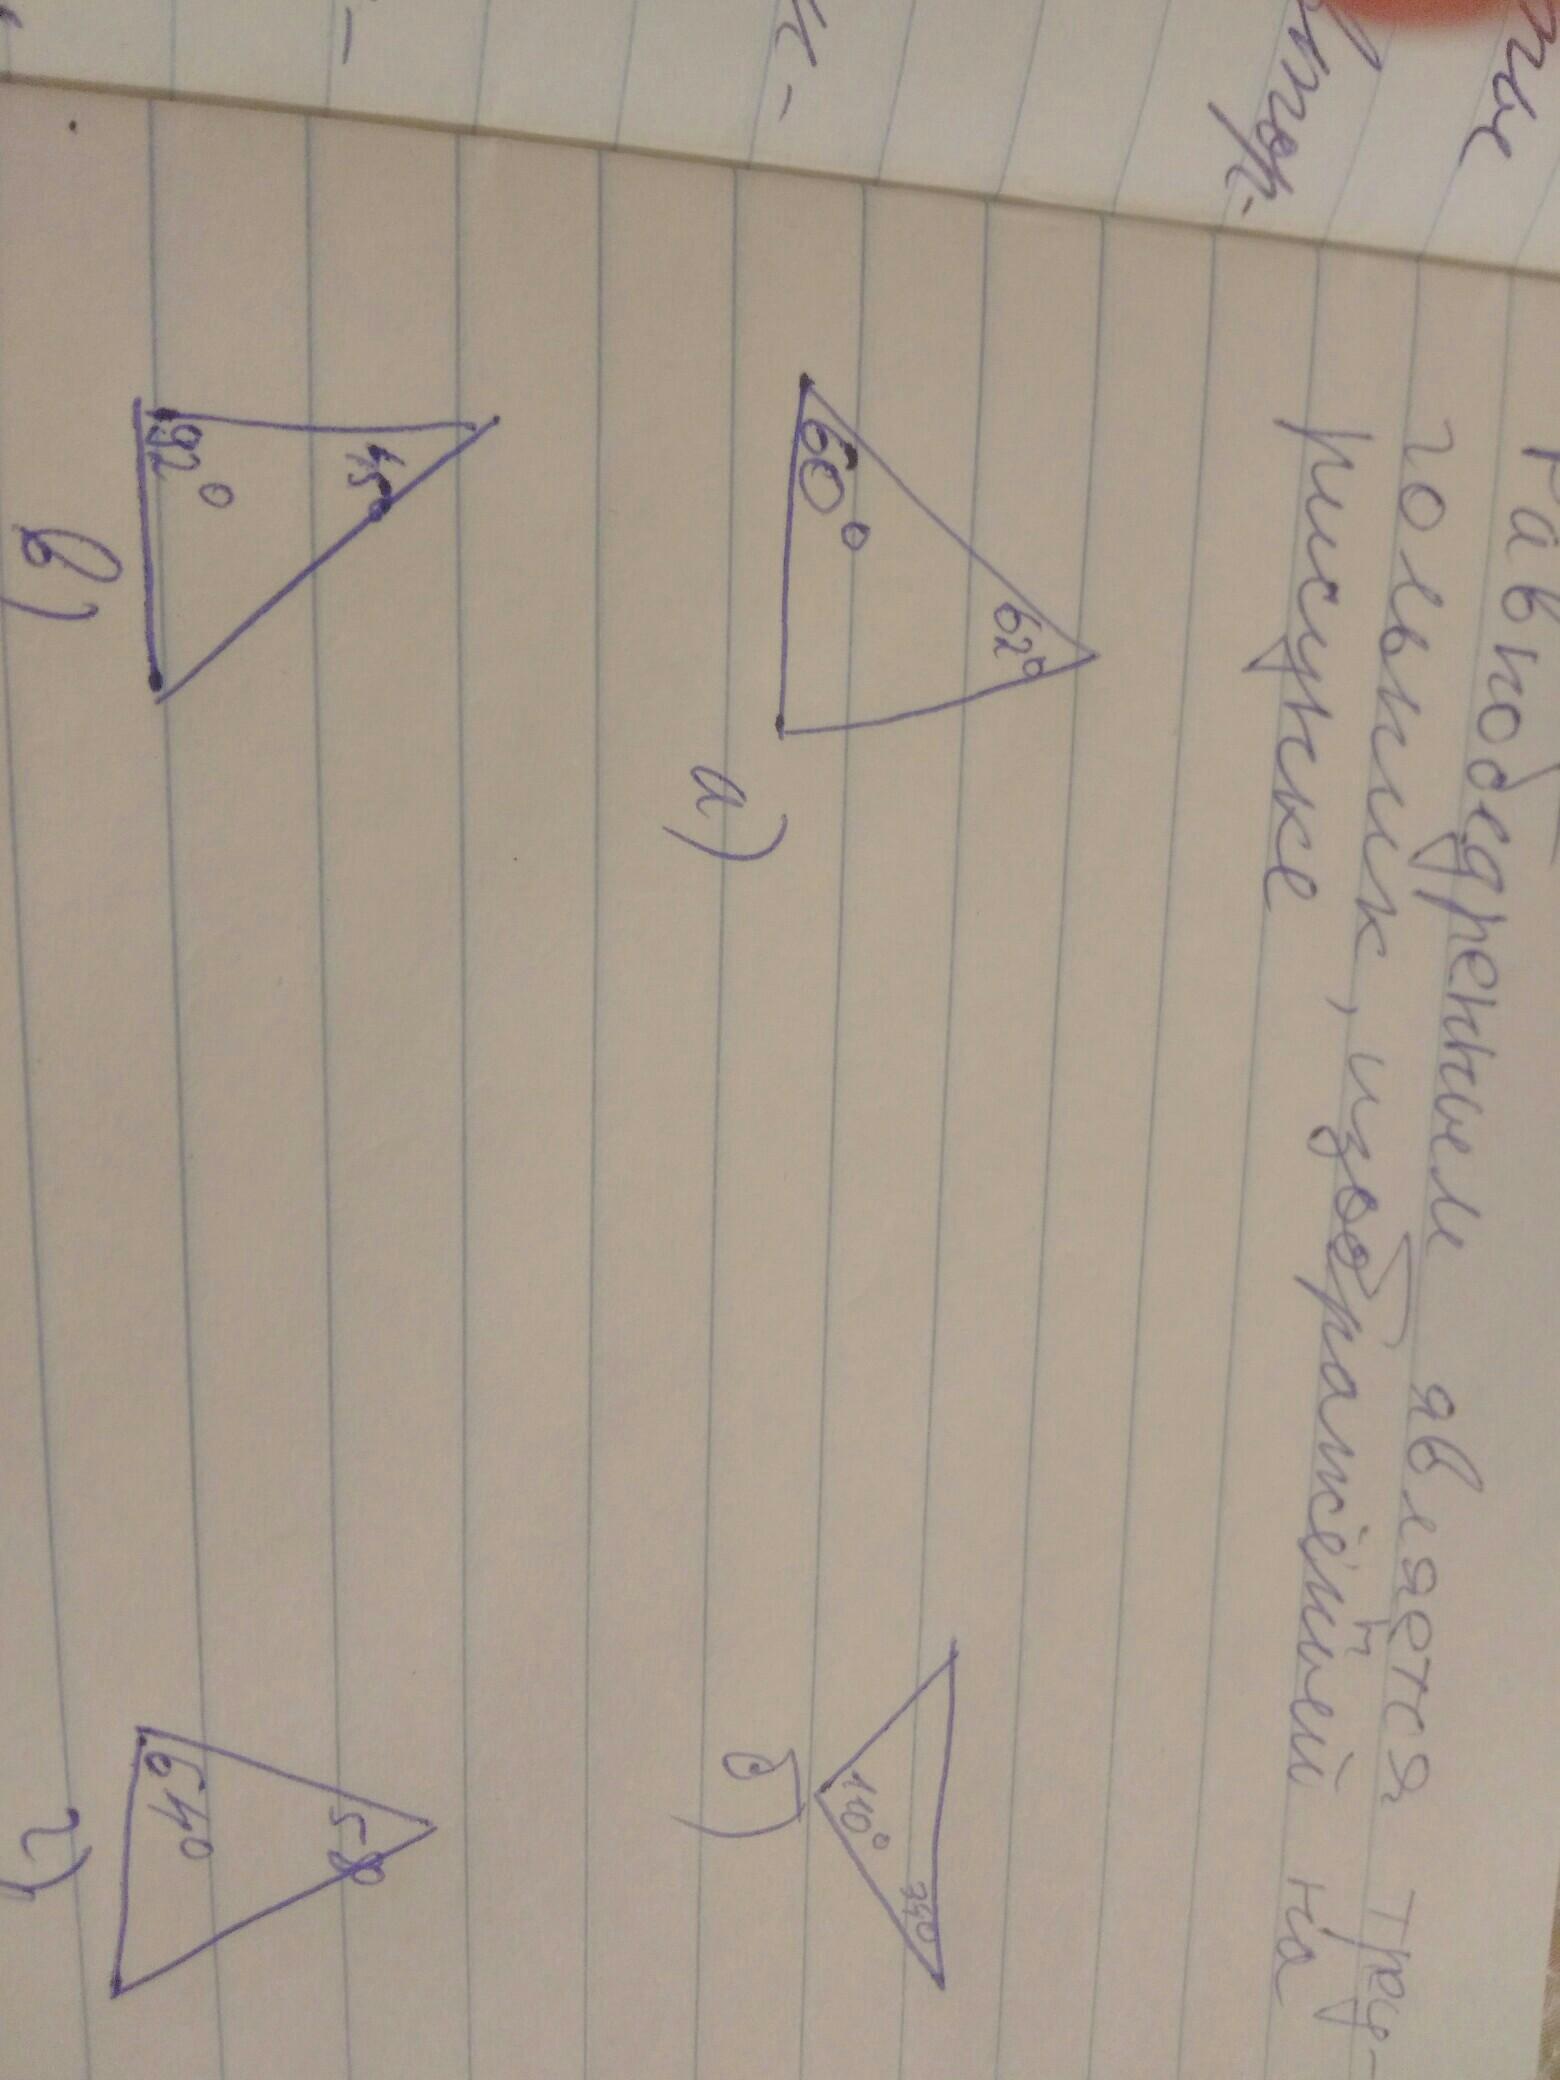 Равнобедренным является треу-
гольник, изображённый на
рисунке
60°
62°
а)
110°
34°
б)
92°
45°
в)
64°
58
г)